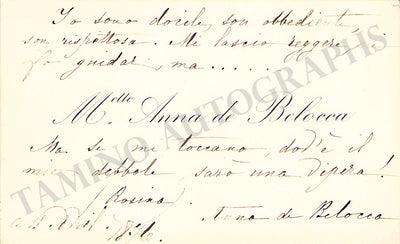 Io sono docile, son obbediente
son rispettosa. Mi lascio reggere, mi
fo guidar, ma.....
Melle Anna de Belocca
Ma se mi toccano, dov'è il
mio debbole, sarò una vipera!
(Rosina)
Anna de Belocca
Avril 1876.
TAMINO AUTOGRAPHS